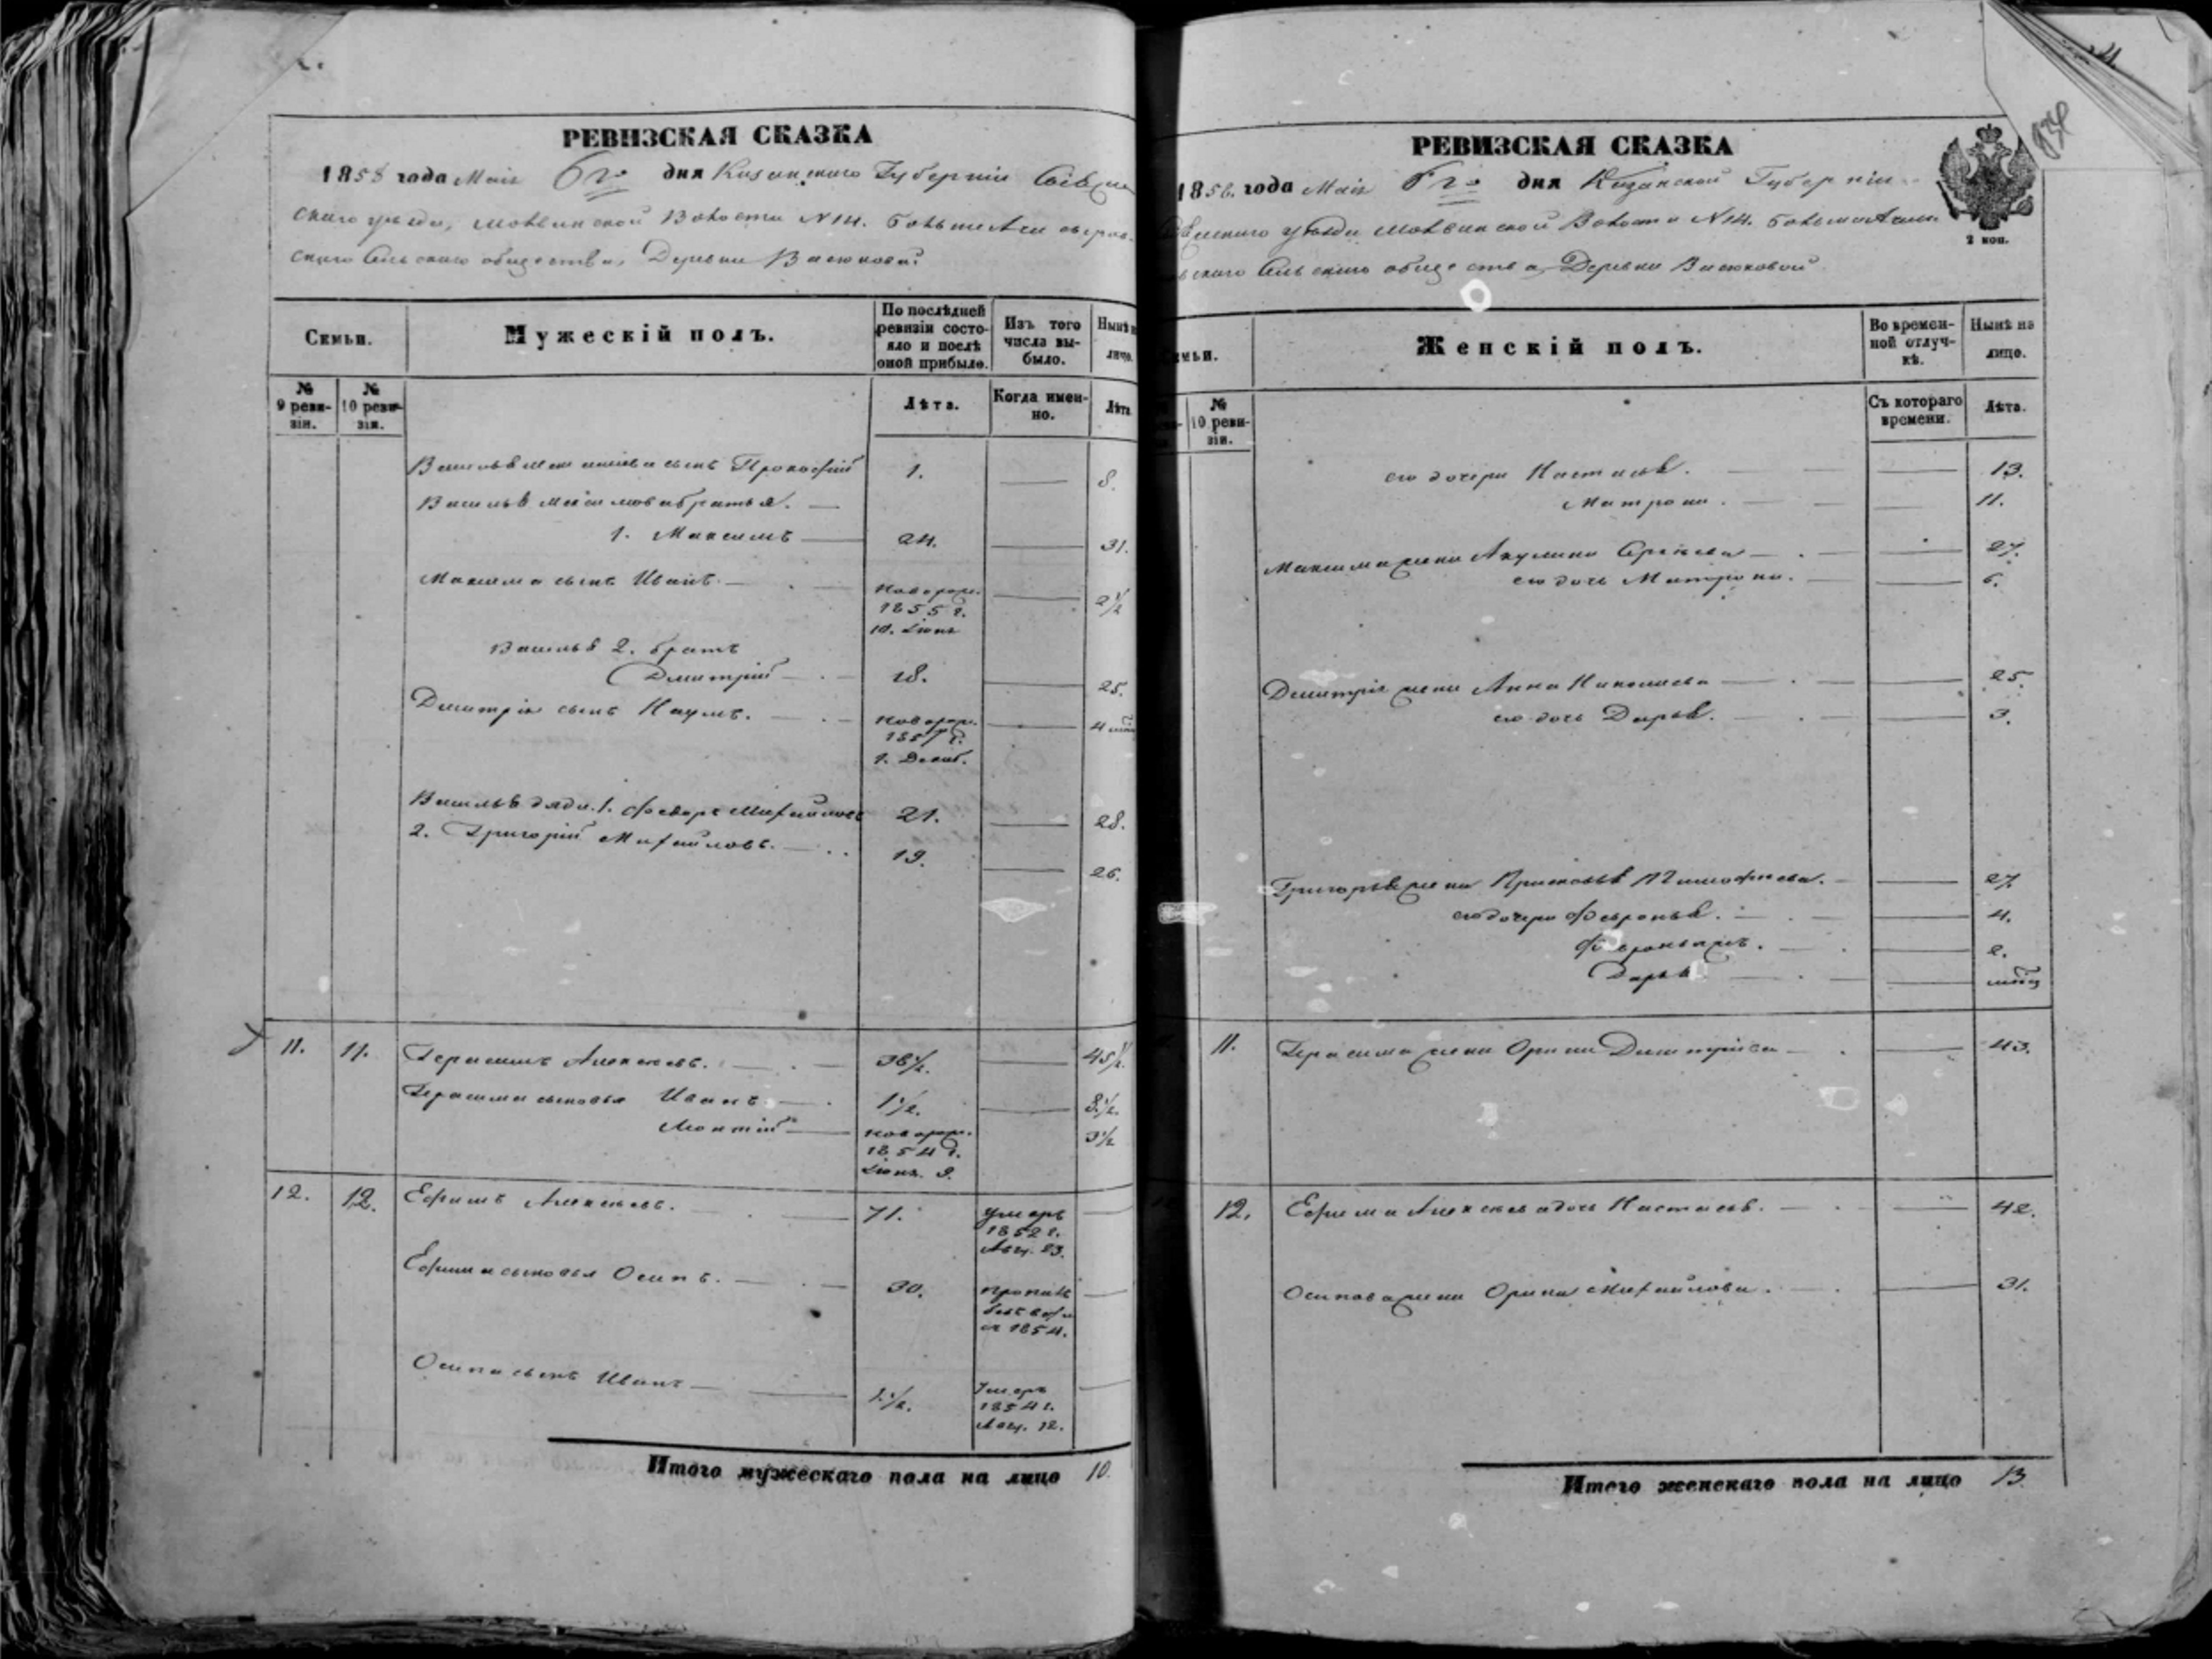 РЕВИЗСКАЯ СКАЗКА
1858 года Маія 6го дня Казанской Губерніи
скаго уѣзда, Волости N 14.
скаго Сельскаго общества, Деревни Васюковой
Семьи.
Мужескій полъ.
По послѣдней ревизіи состояло и послѣ оной прибыло.
Изъ того числа выбыло.
Нынѣ на лицо.
№ 9 ревизіи.
№ 10 ревизіи.
Лѣта.
Когда именно.
Лѣта
сынъ Прокофій 1. 8.
братья.
1. Максимъ 24. 31.
Максима сынъ Иванъ. новорож. 1855 г. 10. Іюня 2 1/2
Василья 2. братъ
Дмитрій 18. 25.
Дмитрія сынъ Наумъ. новорож. 1857 г. 1. Декаб. 4 мѣс
Василья дяди. 1. Федоръ Михайловъ 21. 28.
2. Григорій Михайловъ. 19. 26.
11. 11. Герасимъ Алексѣевъ. 38 1/2. 45 1/2.
Герасима сыновья Иванъ 1 1/2. 8 1/2.
новорож. 1854 г. Іюня. 9. 3 1/2
12. 12. Ефимъ Алексѣевъ. 71. умеръ 1852 г. Авг. 23.
Ефима сыновья Осипъ. 30. 1854.
Осипа сынъ Иванъ 1 1/2. Умеръ 1854 г. Авг. 12.
Итого мужескаго пола на лицо 10.
РЕВИЗСКАЯ СКАЗКА
1858. года Маія 6го дня Казанской Губерніи
уѣзда Волости N 14.
Сельскаго общества Деревни Васюковой
2 коп.
Семьи.
Женскій полъ.
Во временной отлучкѣ.
Нынѣ на лицо.
№ 10 ревизіи.
Съ котораго времени.
Лѣта.
его дочери Настасья. 13.
Матрона. 11.
Максима жена Акулина 27.
его дочь Матрона. 6.
Дмитрія жена Анна Николаева 25.
его дочь Дарья. 3.
Григорья жена Прасковья Тимофеева. 27.
его дочери Февронья. 4.
2.
Дарья мѣсяц
11. Герасима жена Орина Дмитріева 43.
12. Ефима Алексѣева дочь Настасья. 42.
Осипова жена Орина Михайлова. 31.
Итого женскаго пола на лицо 13.